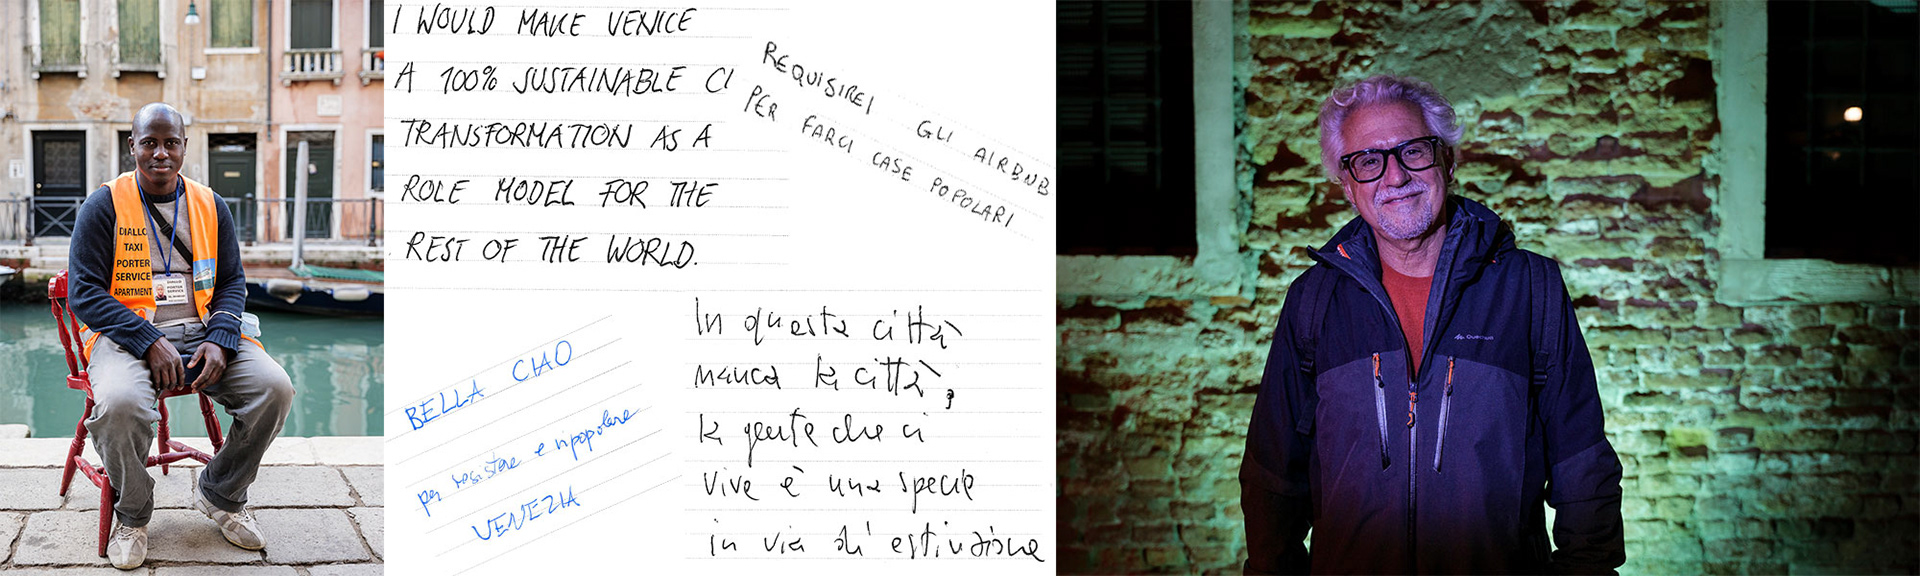 DIALLO
TAXI
PORTER
SERVICE
APARTMENT
DIALLO
PORTER
SERVICE
I WOULD MAKE VENICE
A 100% SUSTAINABLE CI
TRANSFORMATION AS A
ROLE MODEL FOR THE
REST OF THE WORLD.
REQUISIREI GLI AIRBNB
PER FARCI CASE POPOLARI
BELLA CIAO
per resistere e ripopolare
VENEZIA
In questa città
manca la città,
la gente che ci
vive è una specie
in via di estinzione
Quechua